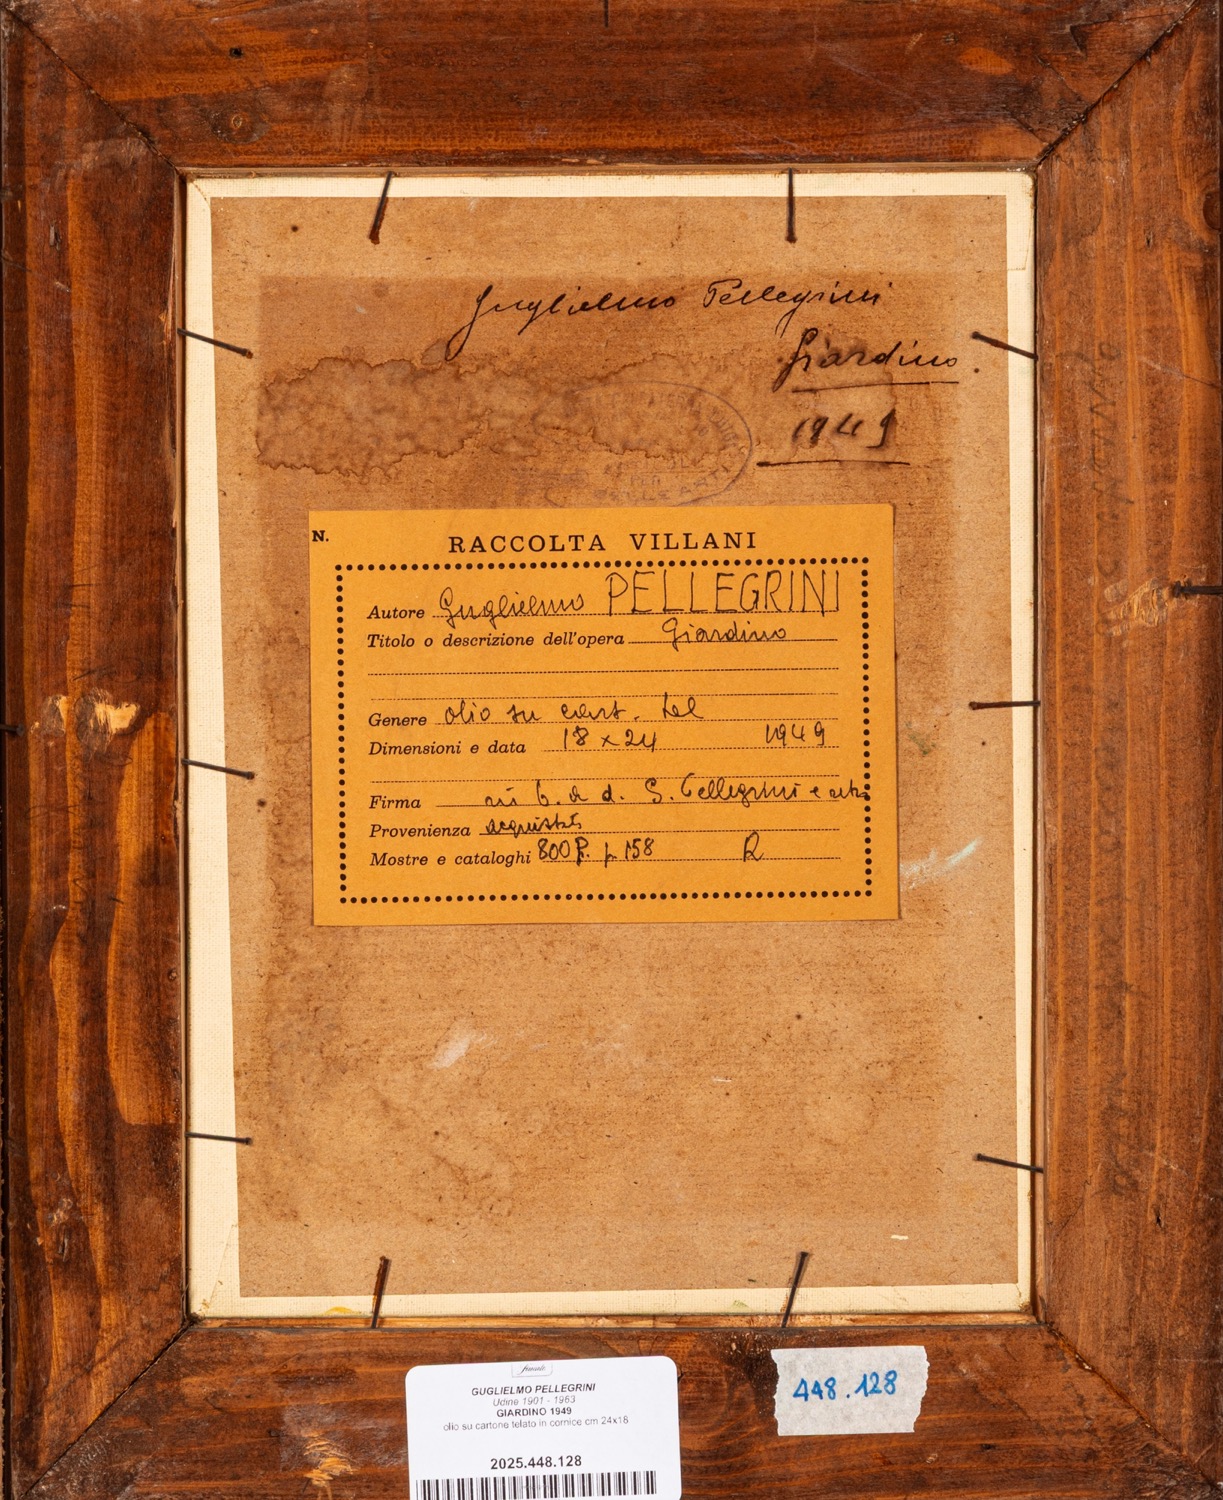 Guglielmo Pellegrini
Giardino.
1949
BELLE ARTI
N.
RACCOLTA VILLANI
Autore Guglielmo PELLEGRINI
Titolo o descrizione dell'opera Giardino
Genere olio su cart. tel
Dimensioni e data 18 x 24 1949
Firma in b. a d. G. Pellegrini e
Provenienza acquisto
Mostre e cataloghi 800 p. 158 R
GUGLIELMO PELLEGRINI
Udine 1901 - 1963
GIARDINO 1949
olio su cartone telato in cornice cm 24x18
2025.448.128
448.128